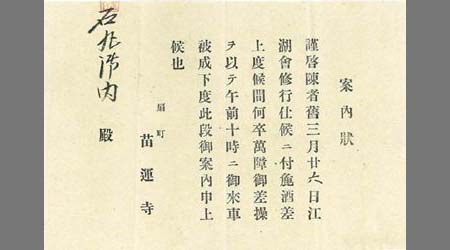 案內狀
謹啓陳者舊三月廿六日江
湖會修行仕候ニ付麁酒差
上度候間何卒萬障御差操
ヲ以テ午前十時ニ御來車
被成下度此段御案內申上
候也
扇町
苗運寺
殿